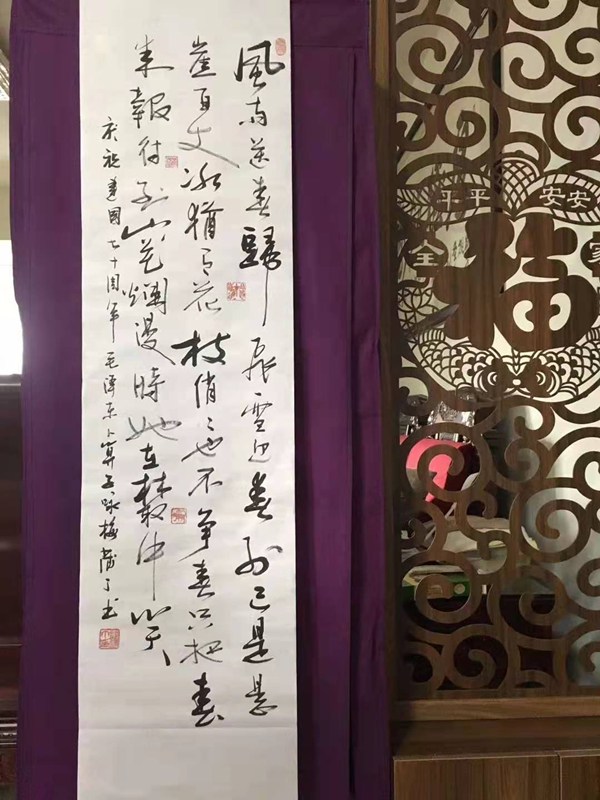 風雨送春歸飛雪迎春到已是悬
崖百丈冰猶有花枝俏〻也不争春只把春
来報待到山花爛漫時她在叢中笑
庆祝建國七十周年毛澤东卜算子咏梅
平平安安
全福家